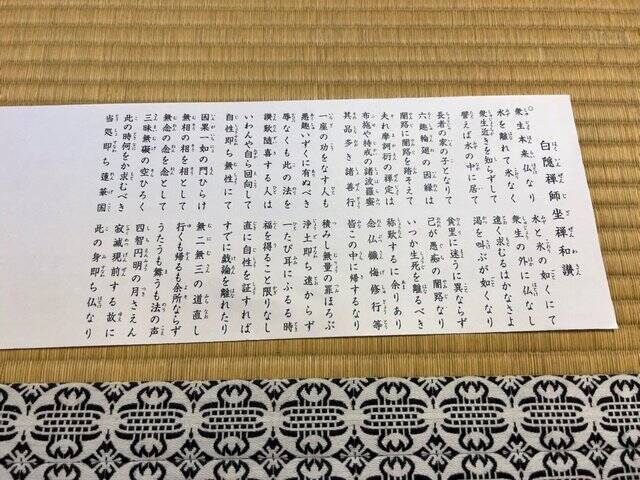 白隠禅師坐禅和讃
衆生本来仏なり 水と氷の如くにて
水を離れて氷なく 衆生の外に仏なし
衆生近きを知らずして 遠く求むるはかなさよ
譬えば水の中に居て 渇を叫ぶが如くなり
長者の家の子となりて 貧里に迷うに異ならず
六趣輪廻の因縁は 己が愚痴の闇路なり
闇路に闇路を踏そえて いつか生死を離るべき
夫れ摩訶衍の禅定は 称歎するに余りあり
布施や持戒の諸波羅蜜 念仏懺悔修行等
其品多き諸善行 皆この中に帰するなり
一座の功をなす人も 積みし無量の罪ほろぶ
悪趣いずくに有ぬべき 浄土即ち遠からず
辱なくも此の法を 一たび耳にふるる時
讃歎随喜する人は 福を得ること限りなし
いわんや自ら回向して 直に自性を証すれば
自性即ち無性にて すでに戯論を離れたり
因果一如の門ひらけ 無二無三の道直し
無相の相を相として 行くも帰るも余所ならず
無念の念を念として うたうも舞うも法の声
三昧無礙の空ひろく 四智円明の月さえん
此の時何をか求むべき 寂滅現前する故に
当処即ち蓮華国 此の身即ち仏なり